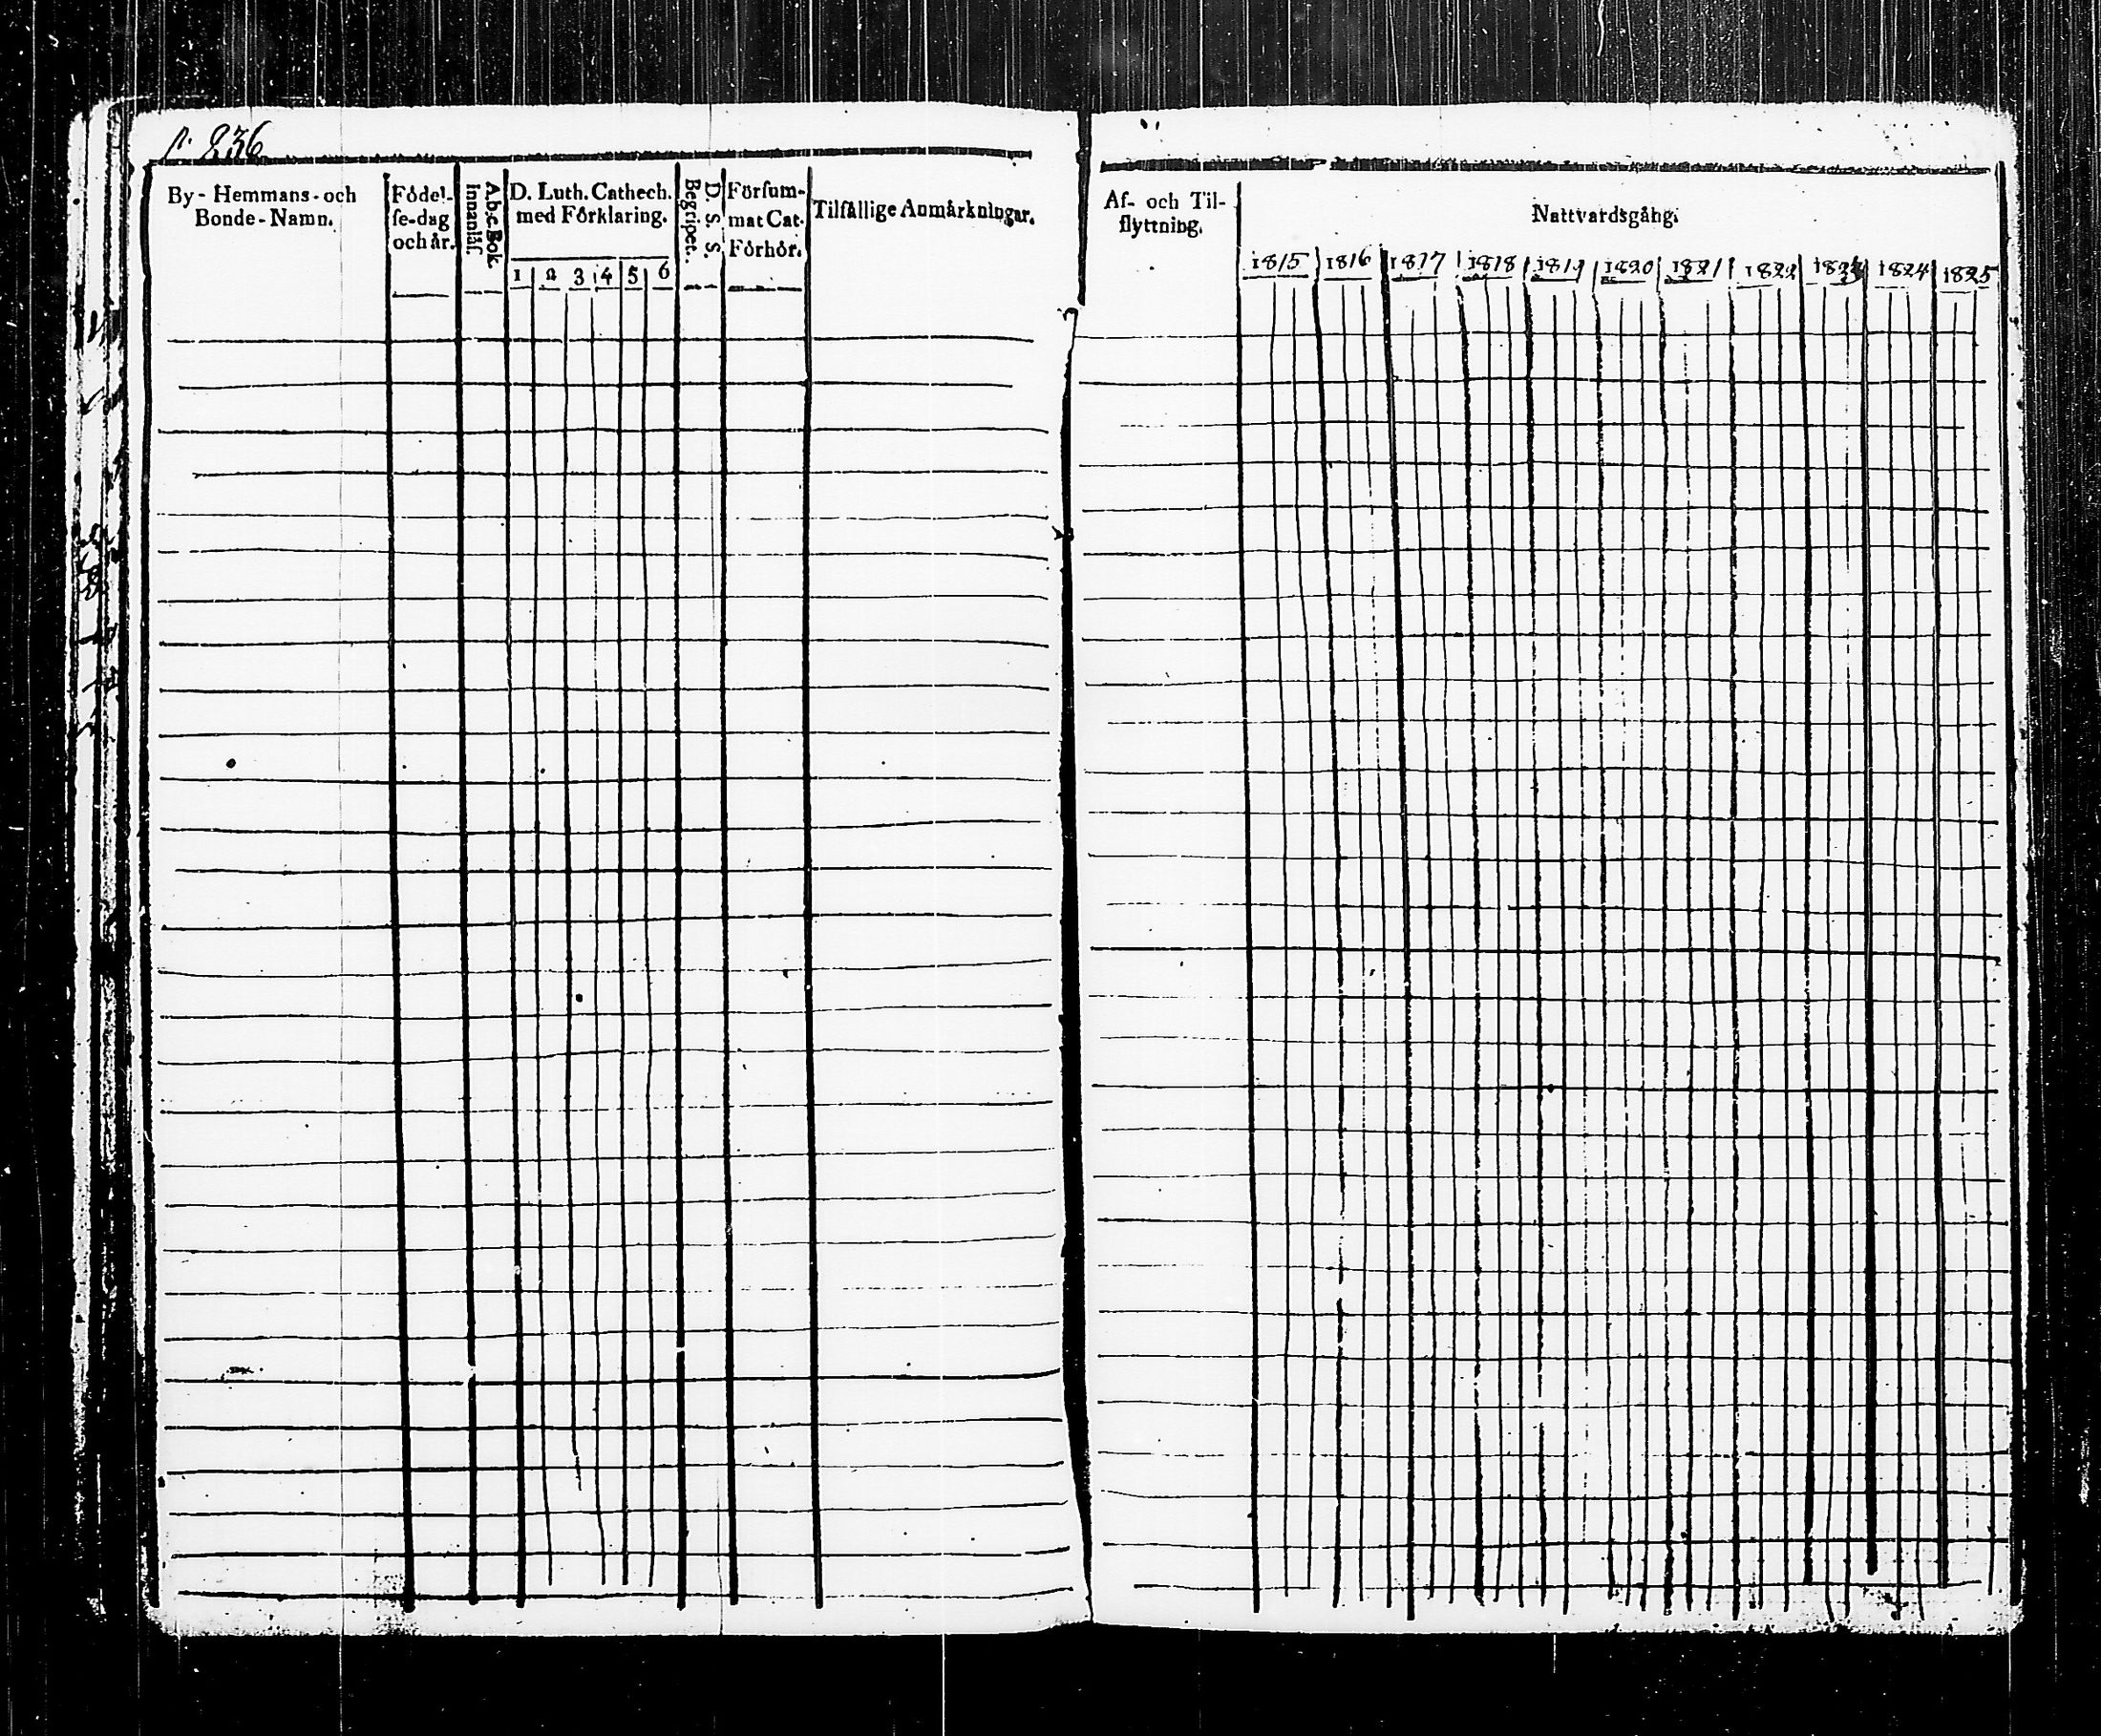 p. 236
By - Hemmans - och
Bonde - Namn.
Födel-
se-dag
och år.
A.b.c. Bok.
innanläs.
D. Luth. Cathech.
med Förklaring.
1 2 3 4 5 6
D. S. S.
Begripet.
Försum-
mat Cat.
Förhör.
Tilfällige Anmärkningar.
Af- och Til-
flyttning.
Nattvardsgång.
1815 1816 1817 1818 1819 1820 1821 1822 1823 1824 1825